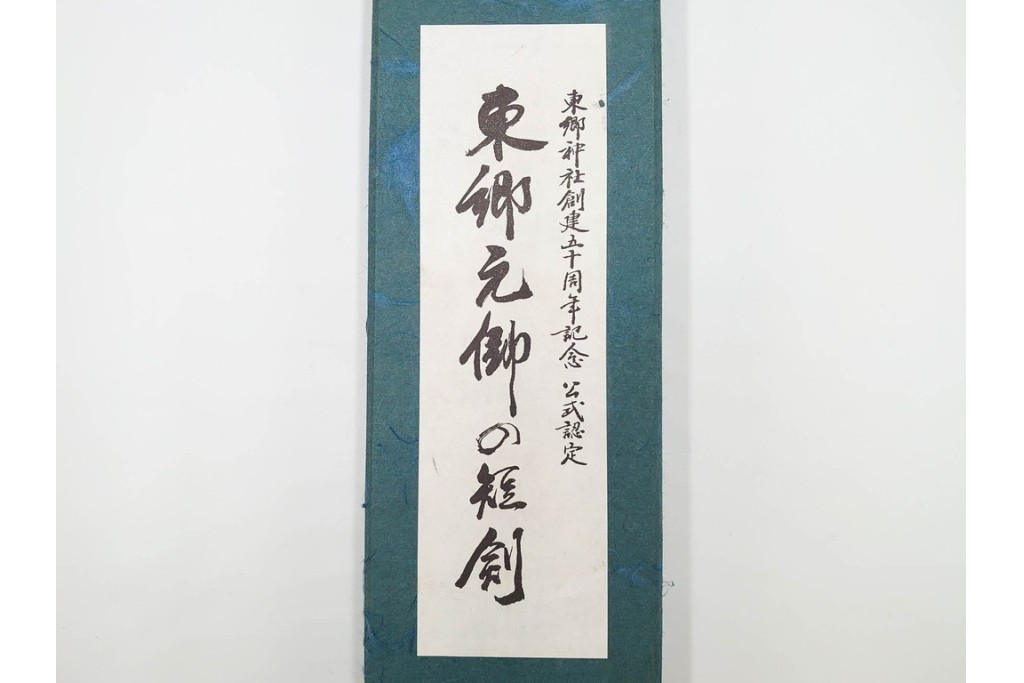 東郷神社創建五十周年記念 公式認定
東郷元帥の短剣